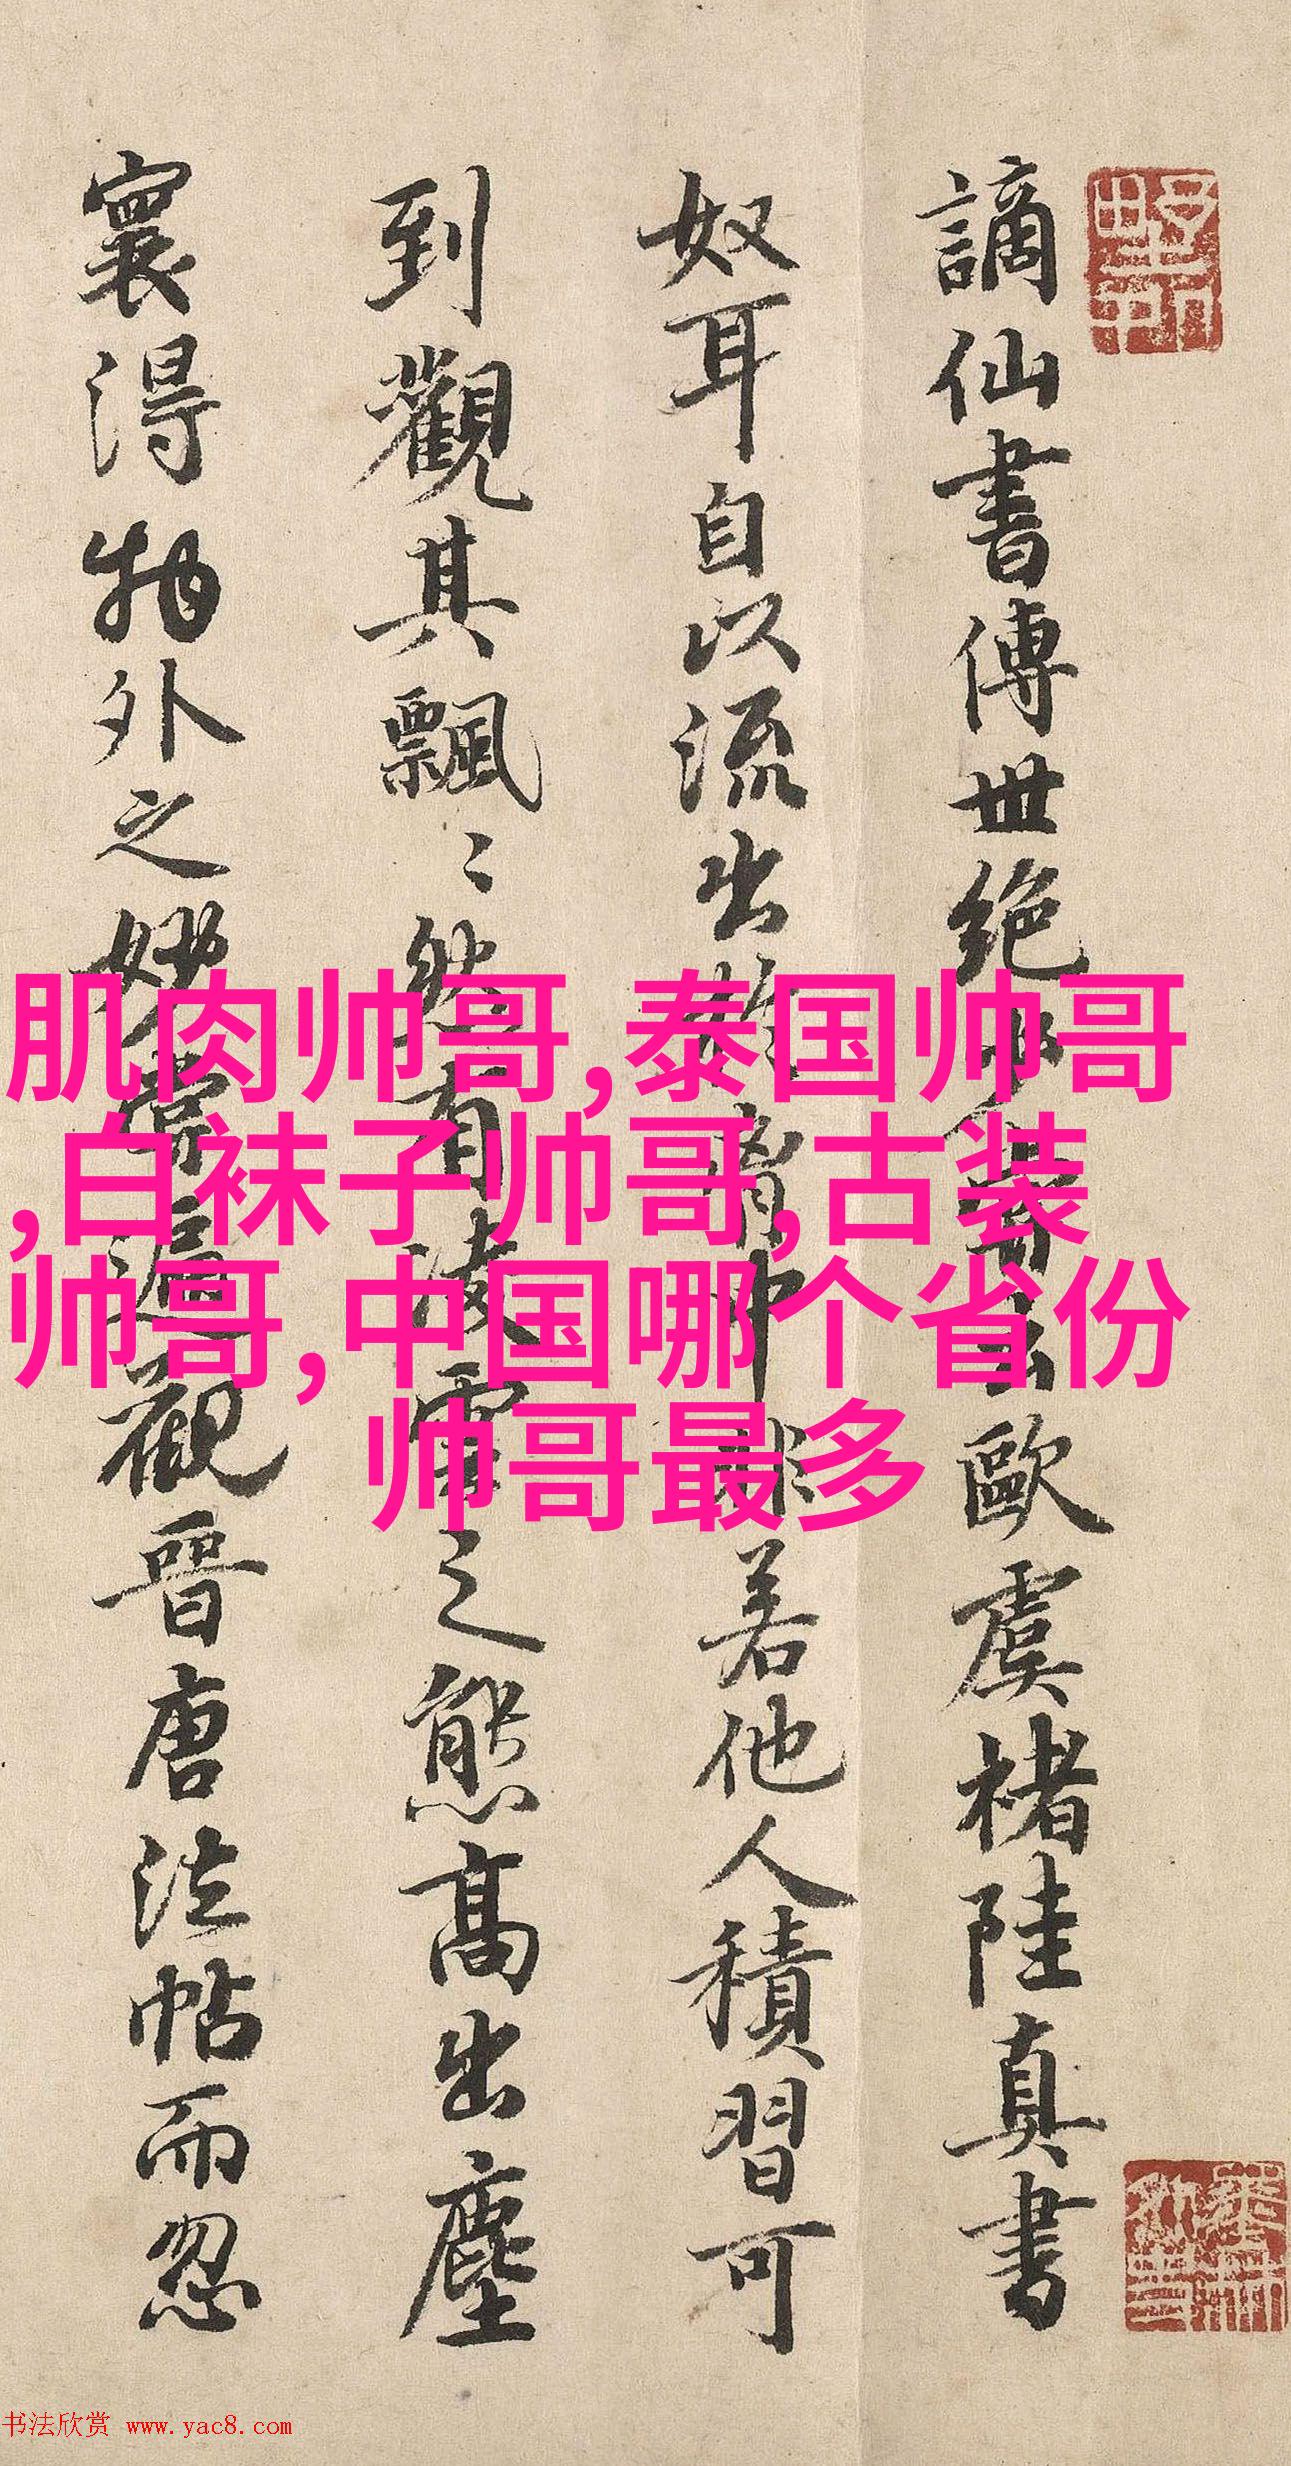 謫仙書傳世絕少嘗云歐虞褚陸真書
奴耳自以流出於胷中非若他人積習可
到觀其飄〻然有凌雲之態高出塵
寰得物外之妙嘗遍觀晉唐法帖而忽
肌肉帅哥,泰国帅哥
,白袜子帅哥,古装
帅哥,中国哪个省份
帅哥最多
书法欣赏 www.yac8.com